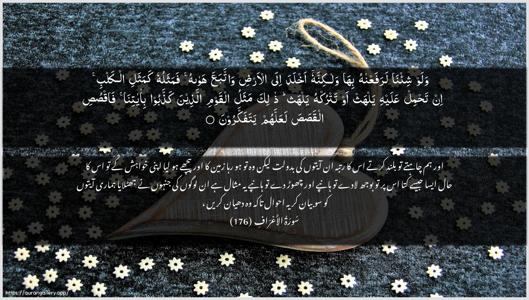 وَلَوْ شِئْنَا لَرَفَعْنٰهُ بِهَا وَلٰـكِنَّهٗۤ اَخْلَدَ اِلَى الْاَرْضِ وَاتَّبَعَ هَوٰٮهُ‌ ۚ فَمَثَلُهٗ كَمَثَلِ الْـكَلْبِ‌ ۚ
اِنْ تَحْمِلْ عَلَيْهِ يَلْهَثْ اَوْ تَتْرُكْهُ يَلْهَثْ ‌ؕ ذٰ لِكَ مَثَلُ الْقَوْمِ الَّذِيْنَ كَذَّبُوْا بِاٰيٰتِنَا‌ ۚ فَاقْصُصِ
الْقَصَصَ لَعَلَّهُمْ يَتَفَكَّرُوْنَ ۞
اور ہم چاہتے تو بلند کرتے اس کا رتبہ ان آیتوں کی بدولت لیکن وہ تو ہو رہا زمین کا اور پیچھے ہو لیا اپنی خواہش کے تو اس کا
حال ایسا جیسے کتا اس پر تو بوجھ لادے تو ہانپے اور چھوڑ دے تو ہانپے یہ مثال ہے ان لوگوں کی جنہوں نے جھٹلایا ہماری آیتوں
کو سو بیان کر یہ احوال تاکہ وہ دھیان کریں،
سُوْرَۃُ الْأَعْرَاف (176)
https://qurangallery.app/